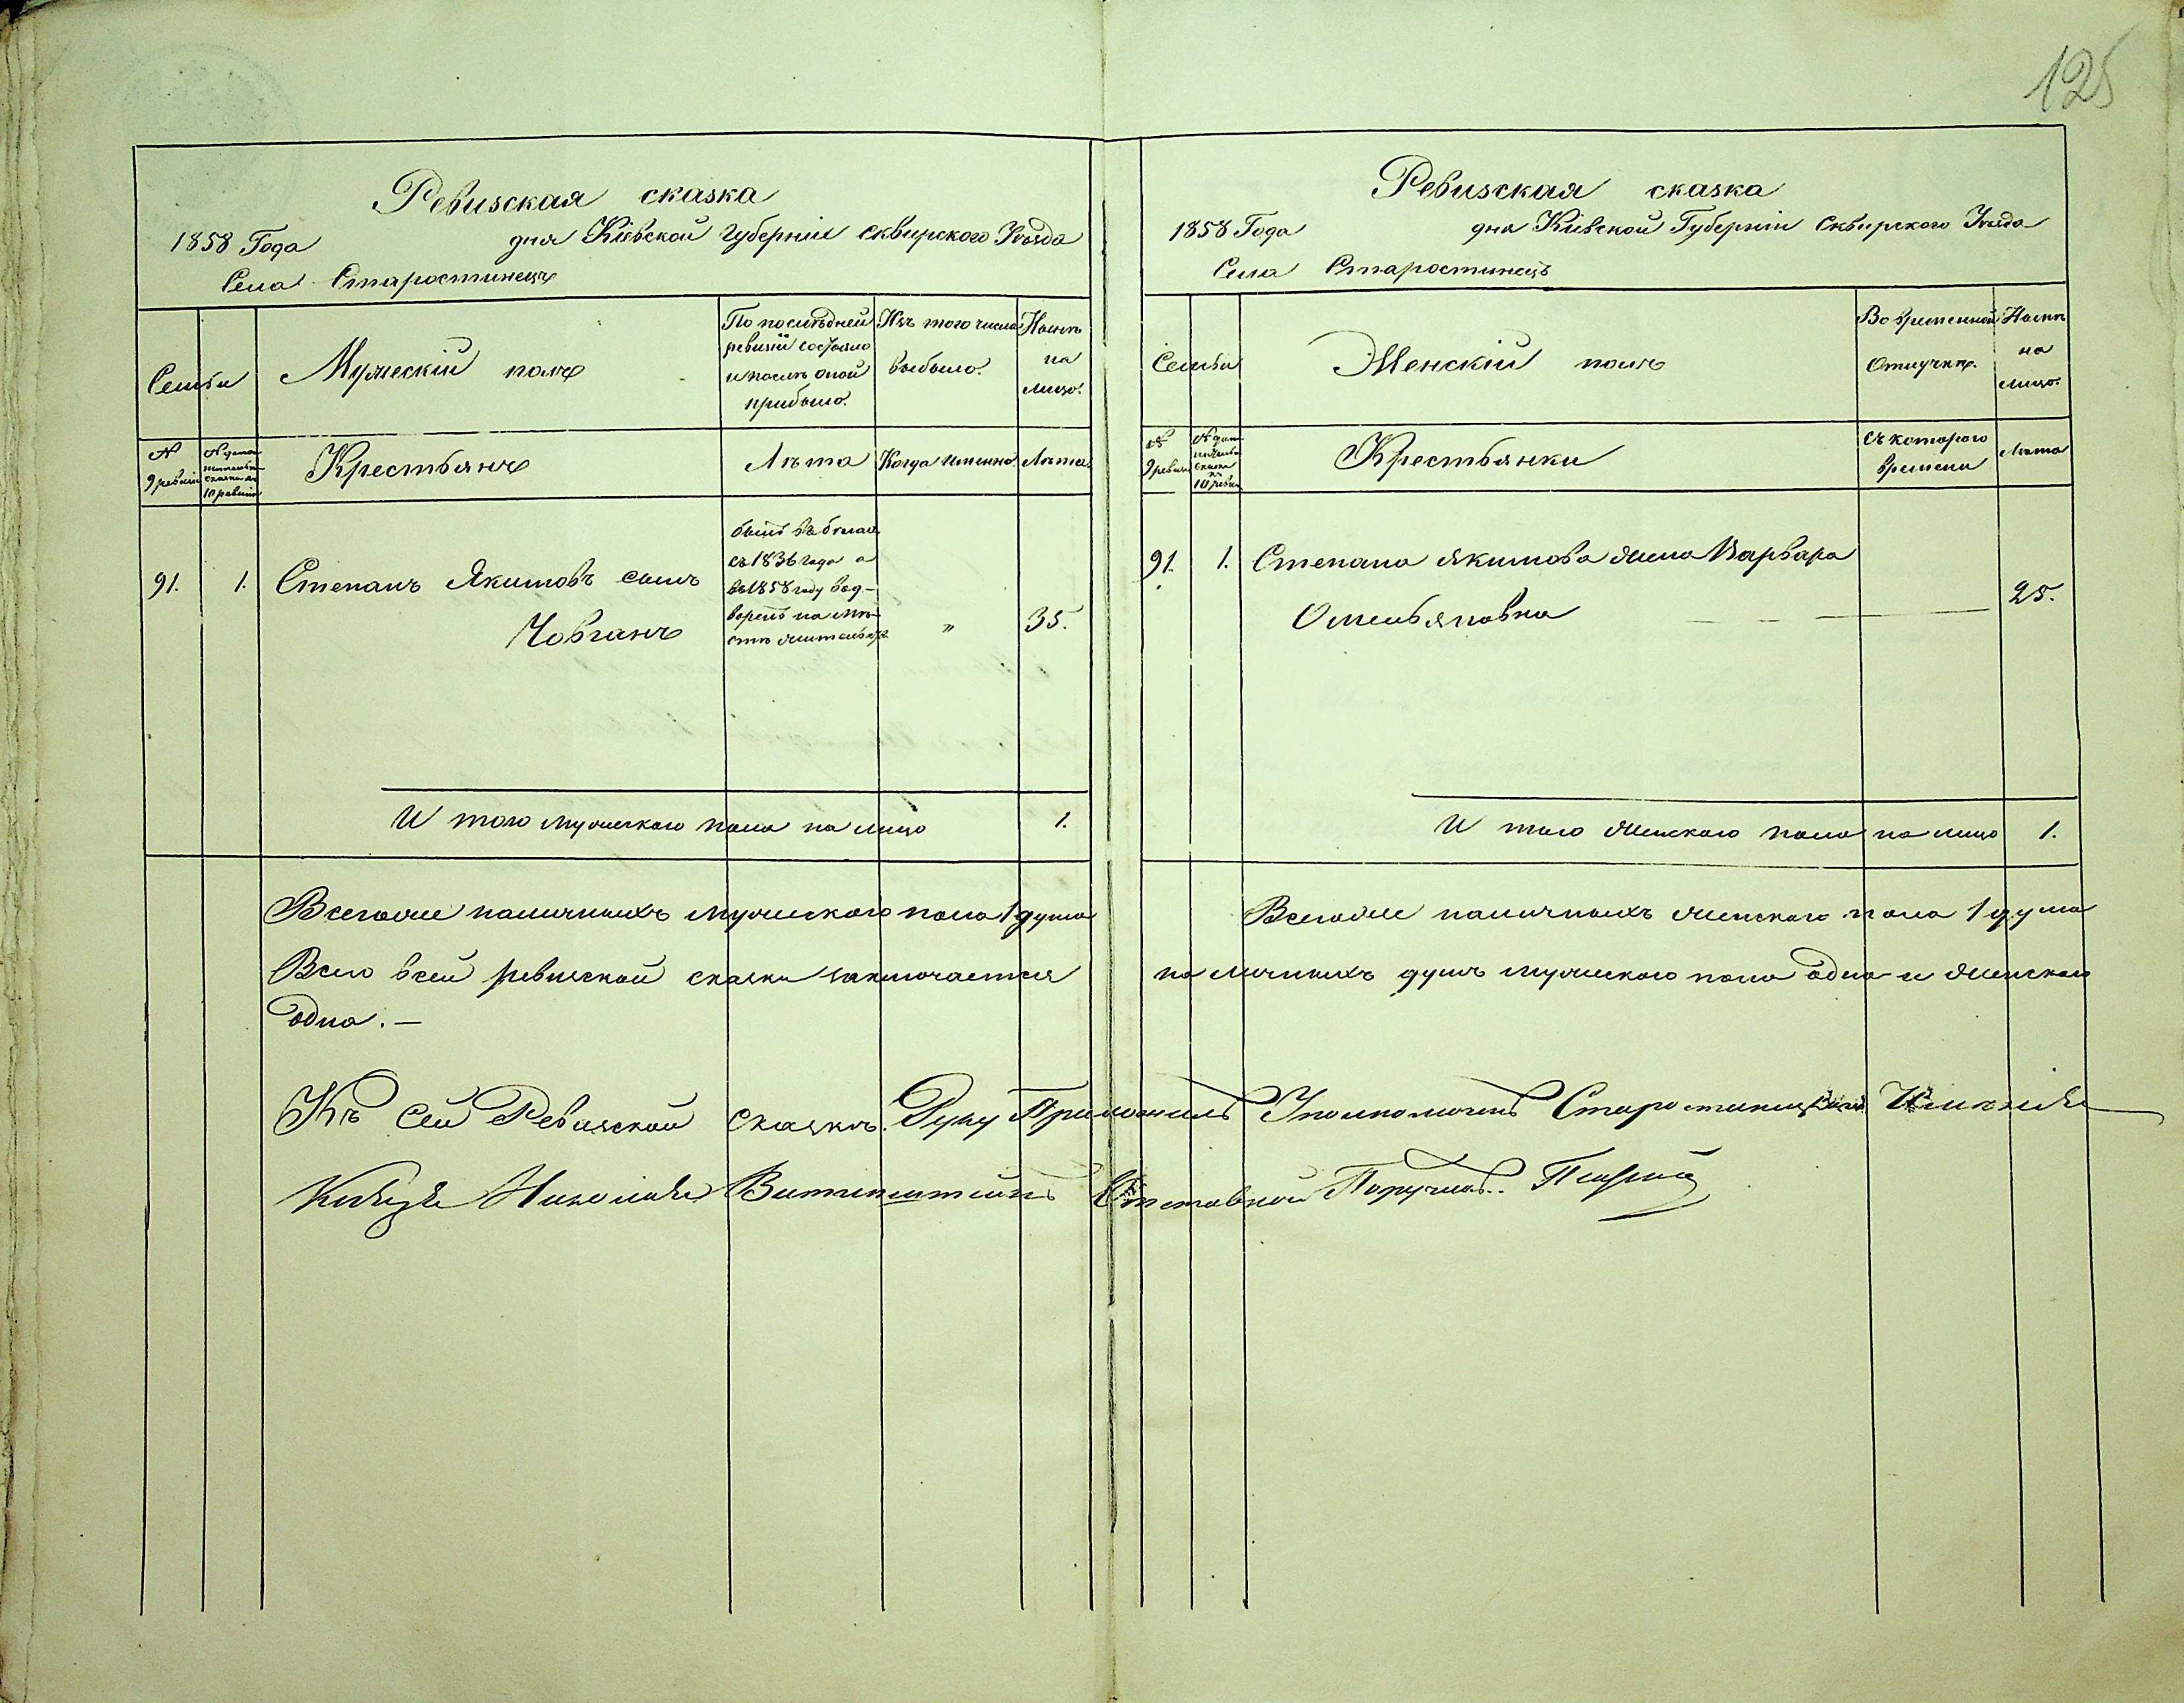 125
Ревизская сказка
1858 Года дня Кіевской Губерніи Сквирского Уезда
Села Старостинецъ
Семьи
Мужескій полъ
По последней ревизіи состояло и после оной прибыло.
Изъ того числа выбыло.
Ныне на лицо.
№ 9 ревизіи
№ допол нительн сказки по 10 ревизіи
Крестьянъ
Лета
Когда именно
Лета
91. 1. Степанъ Якимовъ сынъ Човганъ
былъ въ бегах съ 1836 года а въ 1858 году вод- воренъ на ме- сте жительства
" 35.
И того мужеского пола на лицо 1.
Всего же наличныхъ мужеского пола 1 душа
Ревизская сказка
1858 Года дня Кіевской Губерніи Сквирского Уезда
Села Старостинецъ
Семьи
Женскій полъ
Во временной Отлучке.
Ныне на лицо.
№ 9 ревизіи
№ допол нительн сказки по 10 ревизіи
Крестьянки
Съ которого времени
Лета
91. 1. Степана Якимова жена Варвара
Омельяновна 25.
И того женского пола на лицо 1.
Всего же наличныхъ женского пола 1 душа
Всего в сей ревизской сказки заключается на личныхъ душъ мужеского пола одна и женского
одна. —
Къ Сей Ревизской сказке. Руку Приложилъ Уполномочен Старостинецкаго Именія
Князя Николая Витгинштейнъ Отставной Поручикъ.